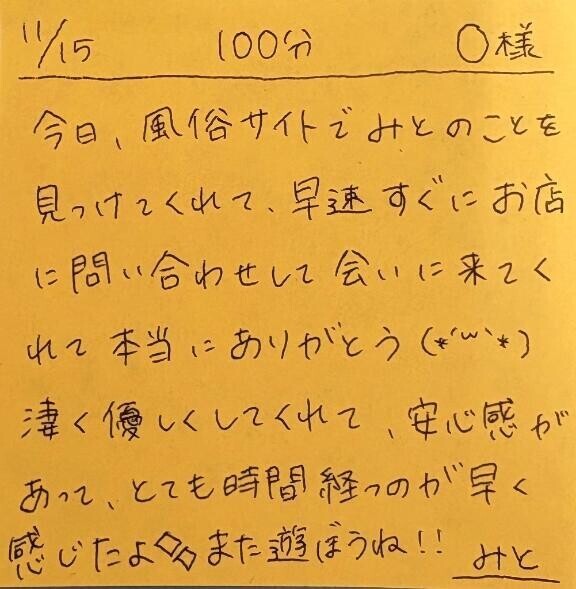 11/15 100分 〇様
今日、風俗サイトでみとのことを
見つけてくれて、早速すぐにお店
に問い合わせして会いに来てく
れて本当にありがとう(*´ω`*)
凄く優しくしてくれて、安心感が
あって、とても時間経つのが早く
感じたよ また遊ぼうね!! みと